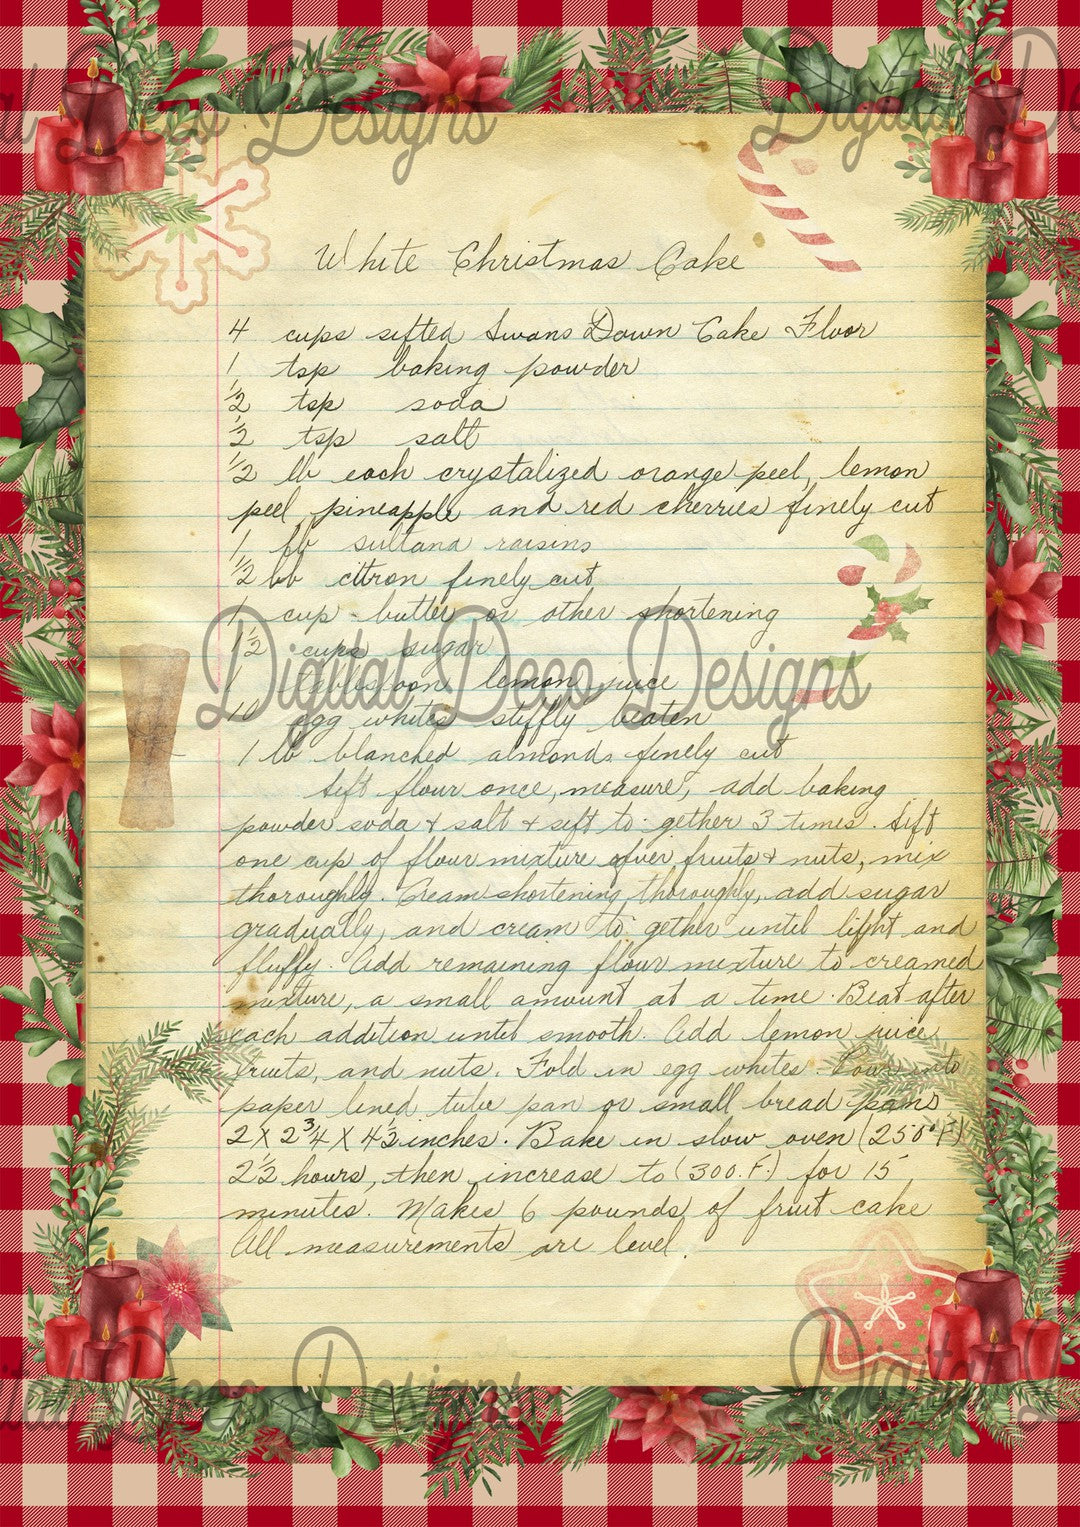 White Christmas Cake
4 cups sifted Swans Down Cake Floor
1 tsp baking powder
1/2 tsp soda
1/2 tsp salt
1/2 lb each crystalized orange peel, lemon
peel, pineapple, and red cherries finely cut
1 lb sultana raisins
1/2 lb citron finely cut
1 cup - butter or other shortening
1 1/2 cups sugar
1 tablespoon lemon juice
10 egg whites stiffly beaten
1 lb blanched almonds finely cut
Sift flour once, measure, add baking
powder soda & salt & sift to-gether 3 times. Sift
one cup of flour mixture over fruits & nuts, mix
thoroughly. Cream shortening thoroughly, add sugar
gradually, and cream to-gether until light and
fluffy. Add remaining flour mixture to creamed
mixture, a small amount at a time. Beat after
each addition until smooth. Add lemon juice
fruits, and nuts. Fold in egg whites. Pour into
paper lined tube pan or small bread pans
2 X 2 3/4 X 4 1/2 inches. Bake in slow oven (250° F)
2 1/2 hours, then increase to (300. F.) for 15
minutes. Makes 6 pounds of fruit cake
All measurements are level.
Digital Deco Designs
Digital Deco Designs
Digital Deco Designs